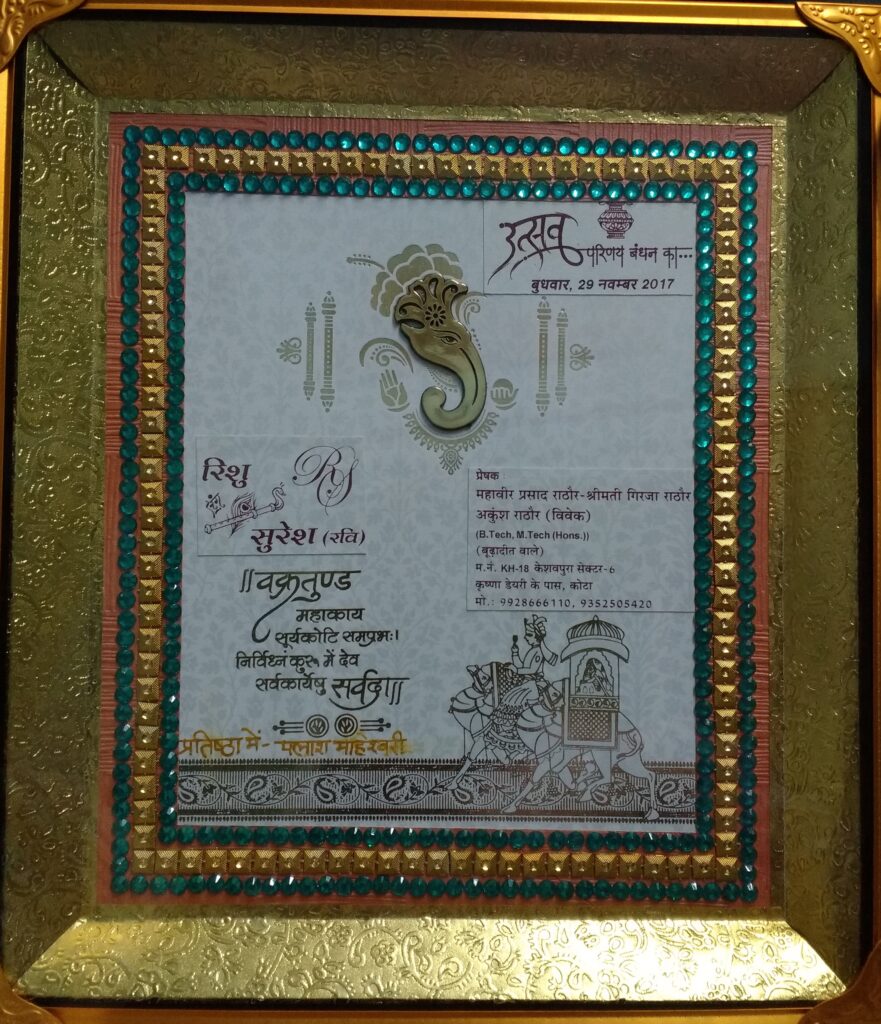 उत्सव
परिणय बंधन का...
बुधवार, 29 नवम्बर 2017
रिशु
RS
सुरेश (रवि)
प्रेषक :
महावीर प्रसाद राठौर-श्रीमती गिरजा राठौर
अकुंश राठौर (विवेक)
(B.Tech, M.Tech (Hons.))
(बूढ़ादीत वाले)
म.नं. KH-18 केशवपुरा सेक्टर-6
कृष्णा डेयरी के पास, कोटा
मो.: 9928666110, 9352505420
||वक्रतुण्ड
महाकाय
सूर्यकोटि समप्रभः।
निर्विघ्नं कुरू में देव
सर्वकार्येषु सर्वदा||
प्रतिष्ठा में - पलाश माहेश्वरी